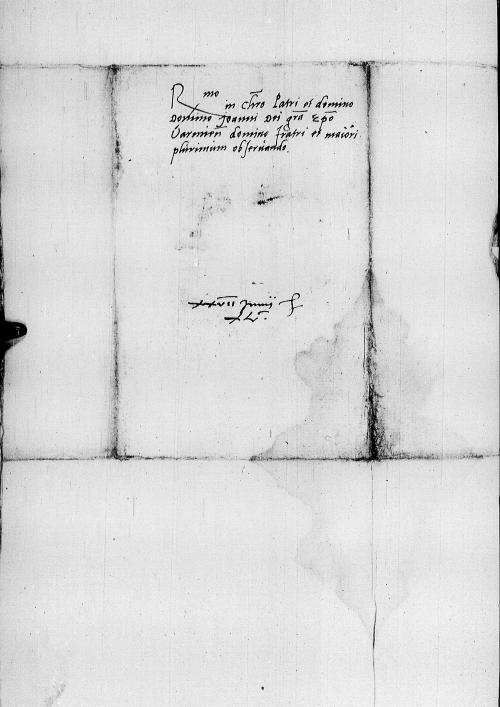 Rmo
in chro Patri et domino
Domino Joanni Dei gra Epo
Varmien domino fratri et maiori
plurimum observando.
xxvii Junij